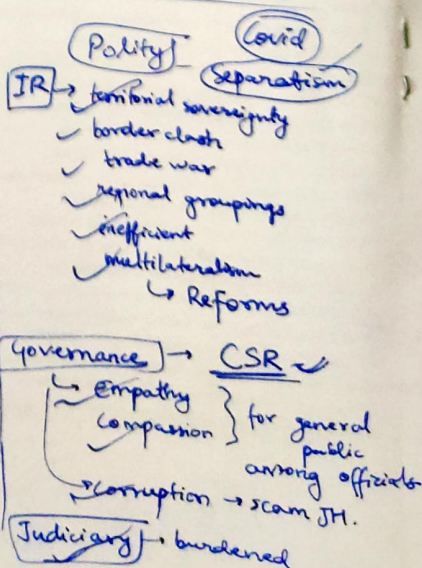 Polity Covid
Separatism
IR → territorial sovereignty
border clash
trade war
regional groupings
inefficient
multilateralism
↳ Reforms
Governance → CSR
↳ Empathy
Compassion } for general
public
among officials
corruption → scam JH.
Judiciary → burdened